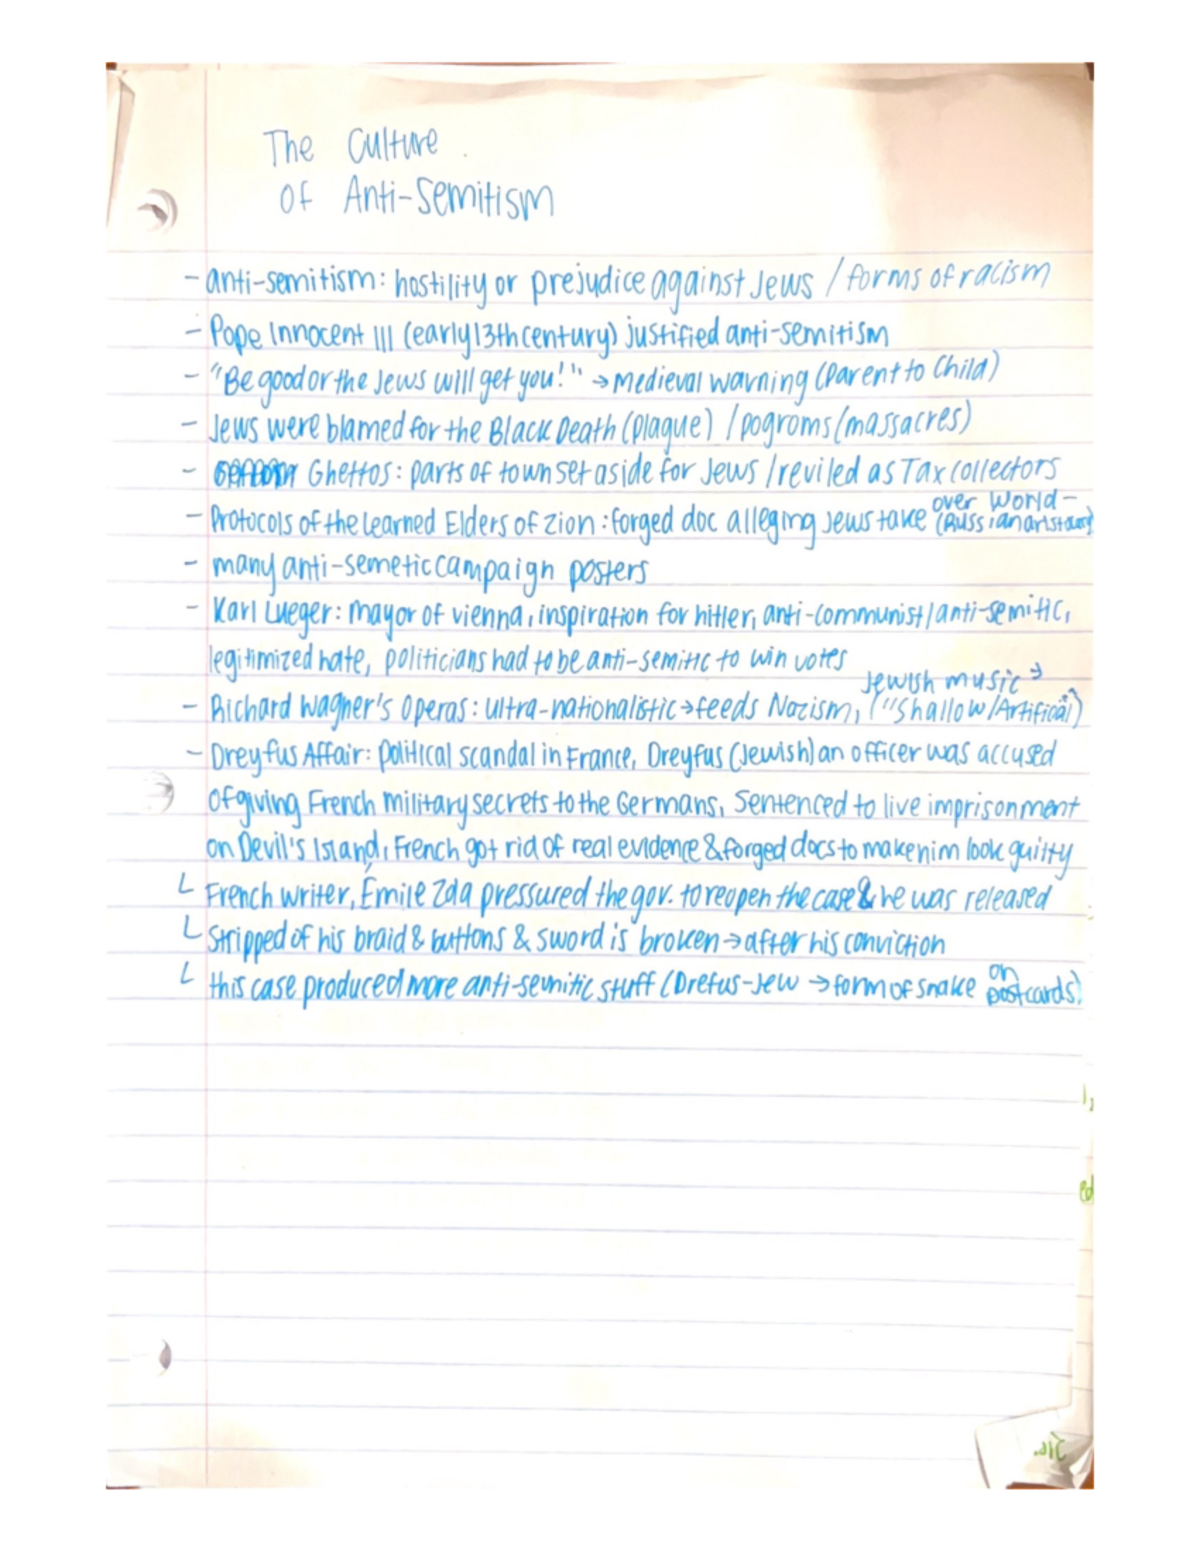 The Culture
of Anti-Semitism
- anti-semitism: hostility or prejudice against Jews / forms of racism
- Pope Innocent III (early 13th century) justified anti-semitism
- "Be good or the Jews will get you!" → Medieval warning (Parent to Child)
- Jews were blamed for the Black Death (plague) / pogroms (massacres)
- Ghettos: parts of town set aside for Jews / reviled as Tax collectors
over World -
- Protocols of the Learned Elders of Zion: forged doc alleging Jews take (Russian
- many anti-semetic campaign posters
- Karl Lueger: mayor of vienna, inspiration for hitler, anti-communist/anti-semitic,
legitimized hate, politicians had to be anti-semitic to win votes
Jewish music →
- Richard Wagner's Operas: ultra-nationalistic → feeds Nazism, ("Shallow/Artificial")
- Dreyfus Affair: political scandal in France, Dreyfus (Jewish) an officer was accused
of giving French military secrets to the Germans, Sentenced to live imprisonment
on Devil's Island, French got rid of real evidence & forged docs to make him look guilty
└ French writer, Émile Zola pressured the gov. to reopen the case & he was released
└ Stripped of his braid & buttons & sword is broken → after his conviction
on
└ this case produced more anti-semitic stuff (Drefus-Jew → form of snake postcards)